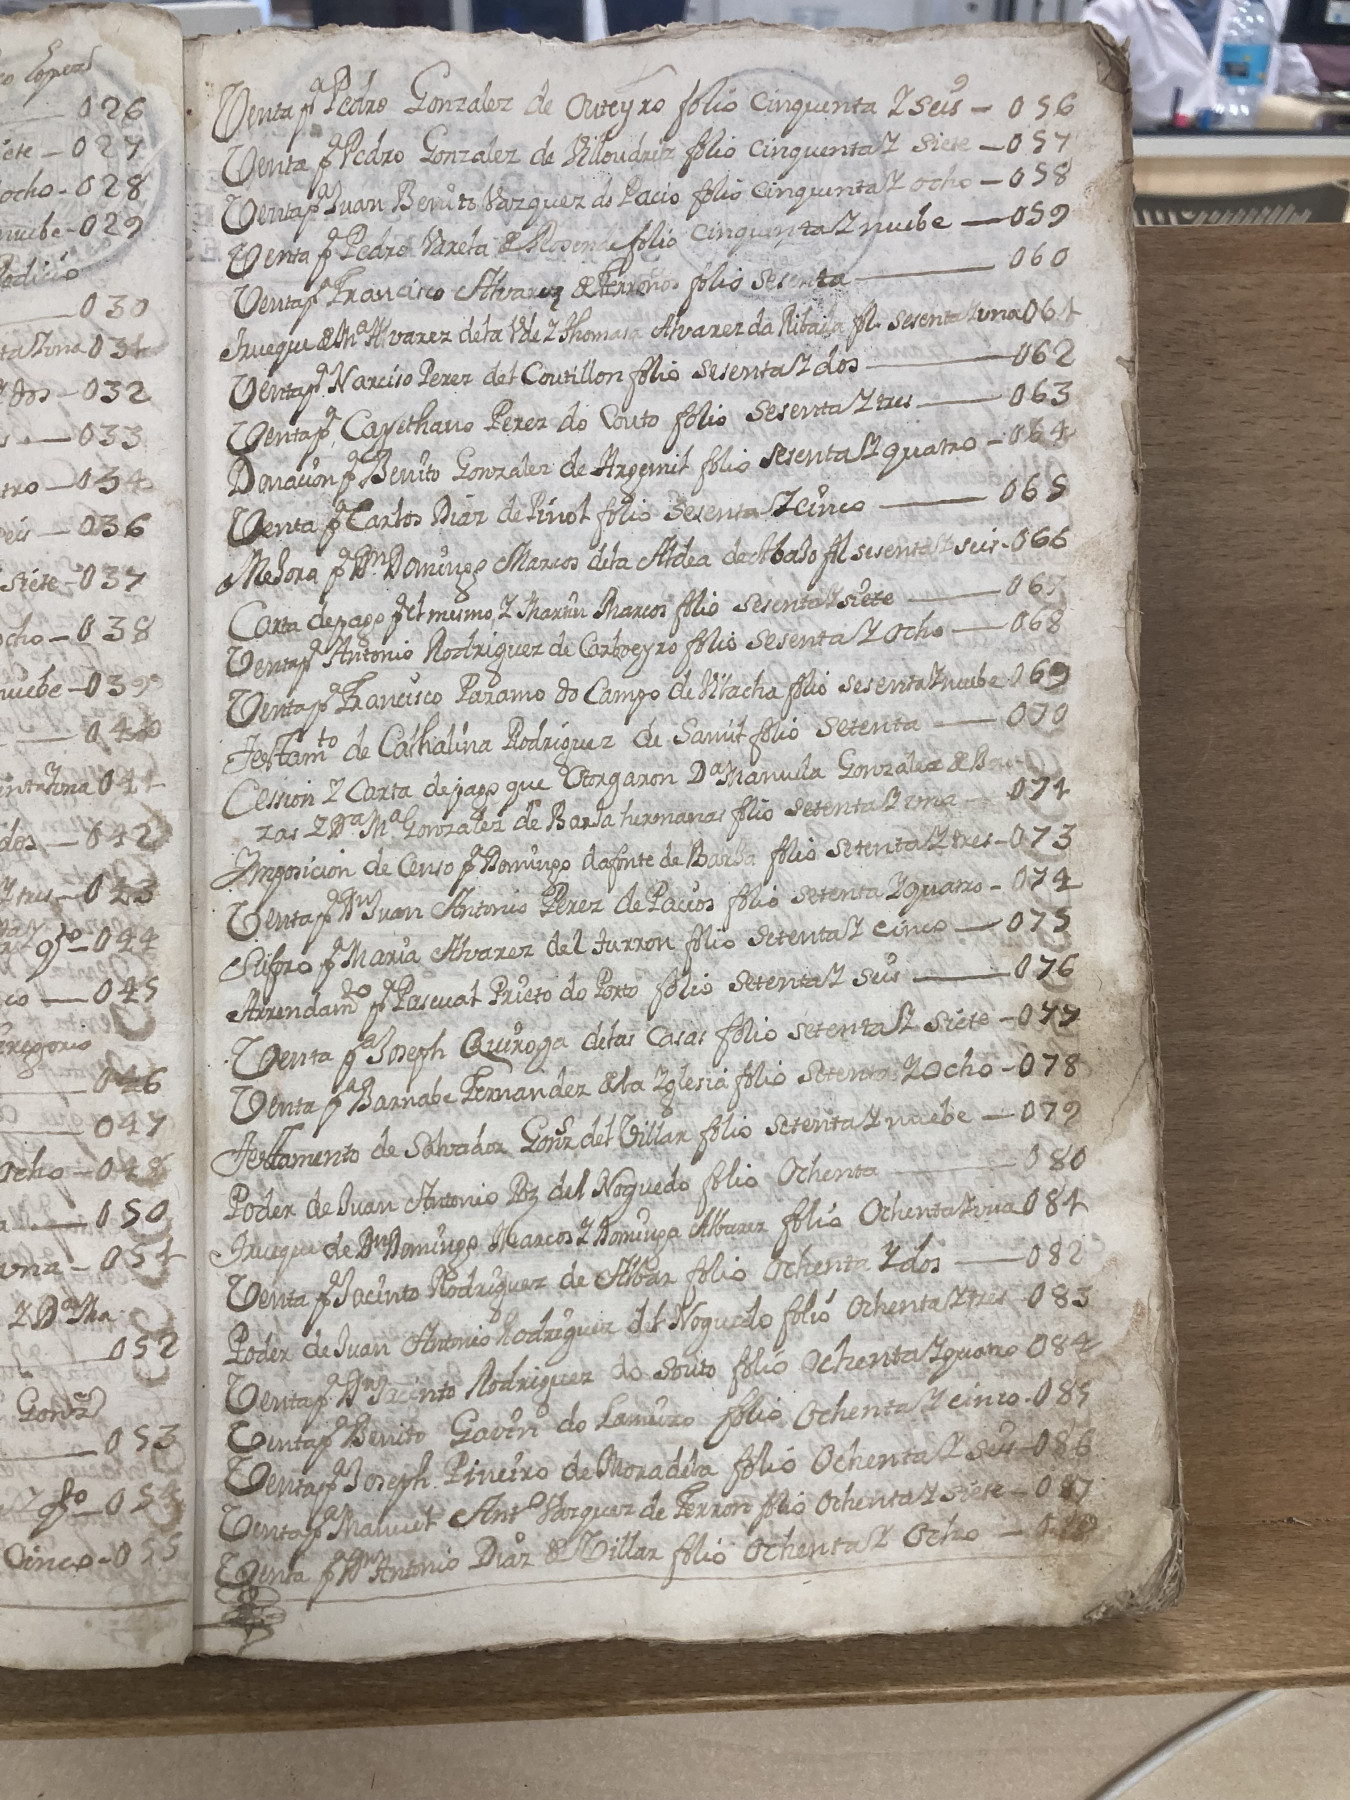 co Lopez
026
siete - 027
ocho - 028
nuebe - 029
030
ta Y una 031
dos - 032
033
tro - 034
seis - 036
siete - 037
ocho - 038
nuebe - 039
040
Y una 041
dos - 042
Y tres - 043
044
co - 045
Gregorio
046
047
ocho - 048
050
una - 051
Y Da
052
Gonz
053
054
Cinco - 055
Venta pa Pedro Gonzalez de Outeyro folio Cinquenta Y seis - 056
Venta pr Pedro Gonzalez de Villoudriz folio Cinquenta Y siete - 057
Venta pa Juan Benito Vazquez do Pacio folio Cinquenta Y ocho - 058
Venta pr Pedro Varela de folio Cinquenta Y nuebe - 059
Venta pr Francisco Alvarez de folio sesenta - 060
Trueque de Ma Alvarez de la Y Thomasa Alvarez da Ribada fl. sesenta Y una 061
Venta pr Narciso Perez del Coutillon folio sesenta Y dos - 062
Venta pr Cayethano Perez do Couto folio sesenta Y tres - 063
Donacion pr Benito Gonzalez de Argemil folio sesenta Y quatro - 064
Venta pr Carlos Diaz de Pinol folio sesenta Y cinco - 065
Mejora pr Dn Domingo Marcos de la Aldea de Abajo fl sesenta Y seis - 066
Carta de pago pr el mesmo, Y Martin Marcos folio sesenta Y siete - 067
Venta pr Antonio Rodriguez de Carboeyro folio sesenta Y Ocho - 068
Venta pr Francisco Paramo do Campo de Vilacha folio sesenta Y nuebe 069
Testamto de Cathalina Rodriguez de Samil folio setenta - 070
Cession Y Carta de pago que Otorgaron Da Manuela Gonzalez de
Y Da Ma Gonzalez de Barja hermanas folio setenta Y una - 071
Imposicion de Censo pr Domingo dafonte de Barja folio setenta Y tres - 073
Venta pr Dn Juan Antonio Perez de Pacios folio setenta Y quatro - 074
pr Maria Alvarez del Turron folio setenta Y cinco - 075
Arrendamto pr Pascual Prieto do Porto folio setenta Y seis - 076
Venta pa Joseph Quiroga de las Casas folio setenta Y siete - 077
Venta pr Barnabe Fernandez de la Yglesia folio setenta Y Ocho - 078
Testamento de Salvador Gonz del Villar folio setenta Y nuebe - 079
Poder de Juan Antonio Rz del Noguedo folio Ochenta - 080
Trueque de Dn Domingo Marcos Y Domingo Albarez folio Ochenta Y una 081
Venta pr Jacinto Rodriguez de folio Ochenta Y dos - 082
Poder de Juan Antonio Rodriguez del Noguedo folio Ochenta Y tres - 083
Venta pr Dn Jacinto Rodriguez do Souto folio Ochenta Y quatro 084
Venta pr Benito do folio Ochenta Y cinco - 085
Venta pr Joseph Pineiro de Moradela folio Ochenta Y seis - 086
Venta pr Manuel Anto Vazquez de Ferron folio Ochenta Y siete - 087
Venta pr Dn Antonio Diaz de Villar folio Ochenta Y Ocho - 088